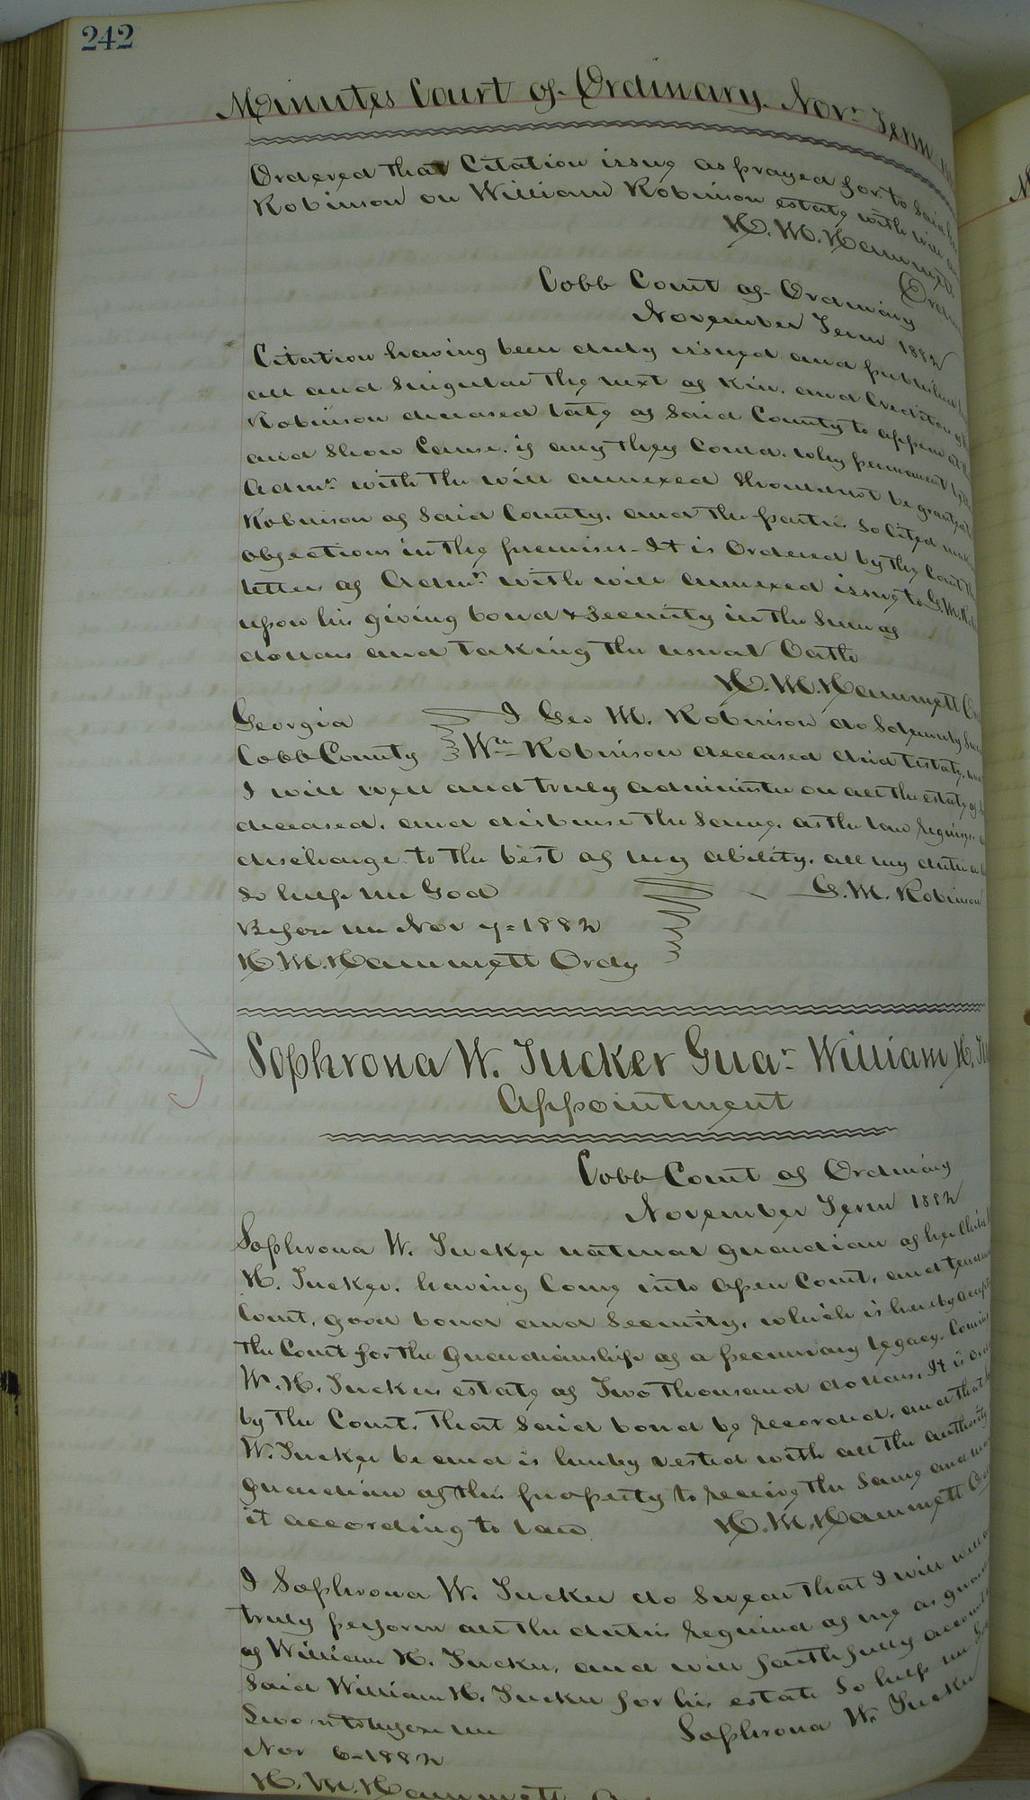 242
Minutes Court of Ordinary. Novr Term
Ordered that Citation issue as prayed for to said
Robinson on William Robinson estate with will
H. M. Hammett
Cobb Court of Ordinary
November Term 1882
Citation having been duly issued and published
all and singular the next of kin. and Creditors of
Robinson deceased late of said County to appear at
and show Cause. if any they Could. why permanent
Admr. with the will annexed should not be granted
Robinson of said County. and the parties so cited
objections in the premises - It is Ordered by the Court
letters of Admr. with will annexed issue to G. M.
upon his giving bond & security in the sum of
dollars and taking the usual Oath
H. M. Hammett
Georgia
I Geo M. Robinson do Solemnly
Cobb County
Wm Robinson deceased died testate,
I will well and truly administer on all the estate of
deceased. and disburse the same. as the law requires
discharge to the best of my ability. all my duties
So help me God
G. M. Robinson
Before me Nov 7=1882
H. M. Hammett Ordy
Sophrona W. Tucker Guar. William H.
Appointment
Cobb Court of Ordinary
November Term 1882
Sophrona W. Tucker natural guardian of her Child
H. Tucker. having Come into open Court, and
Court, good bond and Security, which is hereby
the Court for the guardianship of a pecuniary legacy.
W. H. Tuckers estate of Two thousand dollars, It is
by the Court. that said bond be recorded. and that
W. Tucker be and is hereby vested with all the authority
guardian of this property to receive the same and
it according to law
H. M. Hammett
I Sophrona W. Tucker do swear that I will
truly perform all the duties required of me as
of William H. Tucker, and will faithfully account
said William H. Tucker for his estate So help me
Sworn to before me
Sophrona W. Tucker
Nov 6-1882
H. M. Hammett